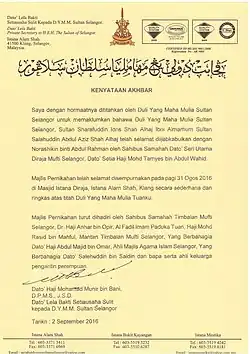 Dato' Lela Bakti
Setiausaha Sulit Kepada D.Y.M.M. Sultan Selangor.
Dato' Lela Bakti
Private Secretary to H.R.H. The Sultan of Selangor
Istana Alam Shah,
41500 Klang, Selangor,
Malaysia.
KENYATAAN AKHBAR
Saya dengan hormatnya dititahkan oleh Duli Yang Maha Mulia Sultan
Selangor untuk memaklumkan bahawa Duli Yang Maha Mulia Sultan
Selangor, Sultan Sharafuddin Idris Shah Alhaj Ibni Almarhum Sultan
Salahuddin Abdul Aziz Shah Alhaj telah selamat dijabkabulkan dengan
Norashikin binti Abdul Rahman oleh Sahibus Samahah Dato' Seri Utama
Diraja Mufti Selangor, Dato' Setia Haji Mohd Tamyes bin Abdul Wahid.
Majlis Pernikahan telah selamat disempurnakan pada pagi 31 Ogos 2016
di Masjid Istana Diraja, Istana Alam Shah, Klang secara sederhana dan
ringkas atas titah Duli Yang Maha Mulia Tuanku.
Majlis Pernikahan turut dihadiri oleh Sahibus Samahah Timbalan Mufti
Selangor, Dr. Haji Anhar bin Opir, Al Fadil Imam Paduka Tuan, Haji Mohd
Rasid bin Mahful, Mantan Timbalan Mufti Selangor, Yang Berbahagia
Dato' Haji Abdul Majid bin Omar, Ahli Majlis Agama Islam Selangor, Yang
Berbahagia Dato' Salehuddin bin Saidin dan bapa serta ahli keluarga
pengantin perempuan.
Dato' Haji Mohamad Munir bin Bani,
D.P.M.S., J.S.D.
Dato' Lela Bakti Setiausaha Sulit
kepada D.Y.M.M. Sultan Selangor
Tarikh : 2 September 2016
Istana Alam Shah
Istana Bukit Kayangan
Istana Mestika